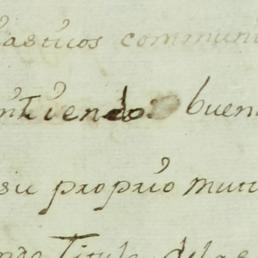 asticos communi
ntiendo buen
su proprio mutu
ndo Titulo dela